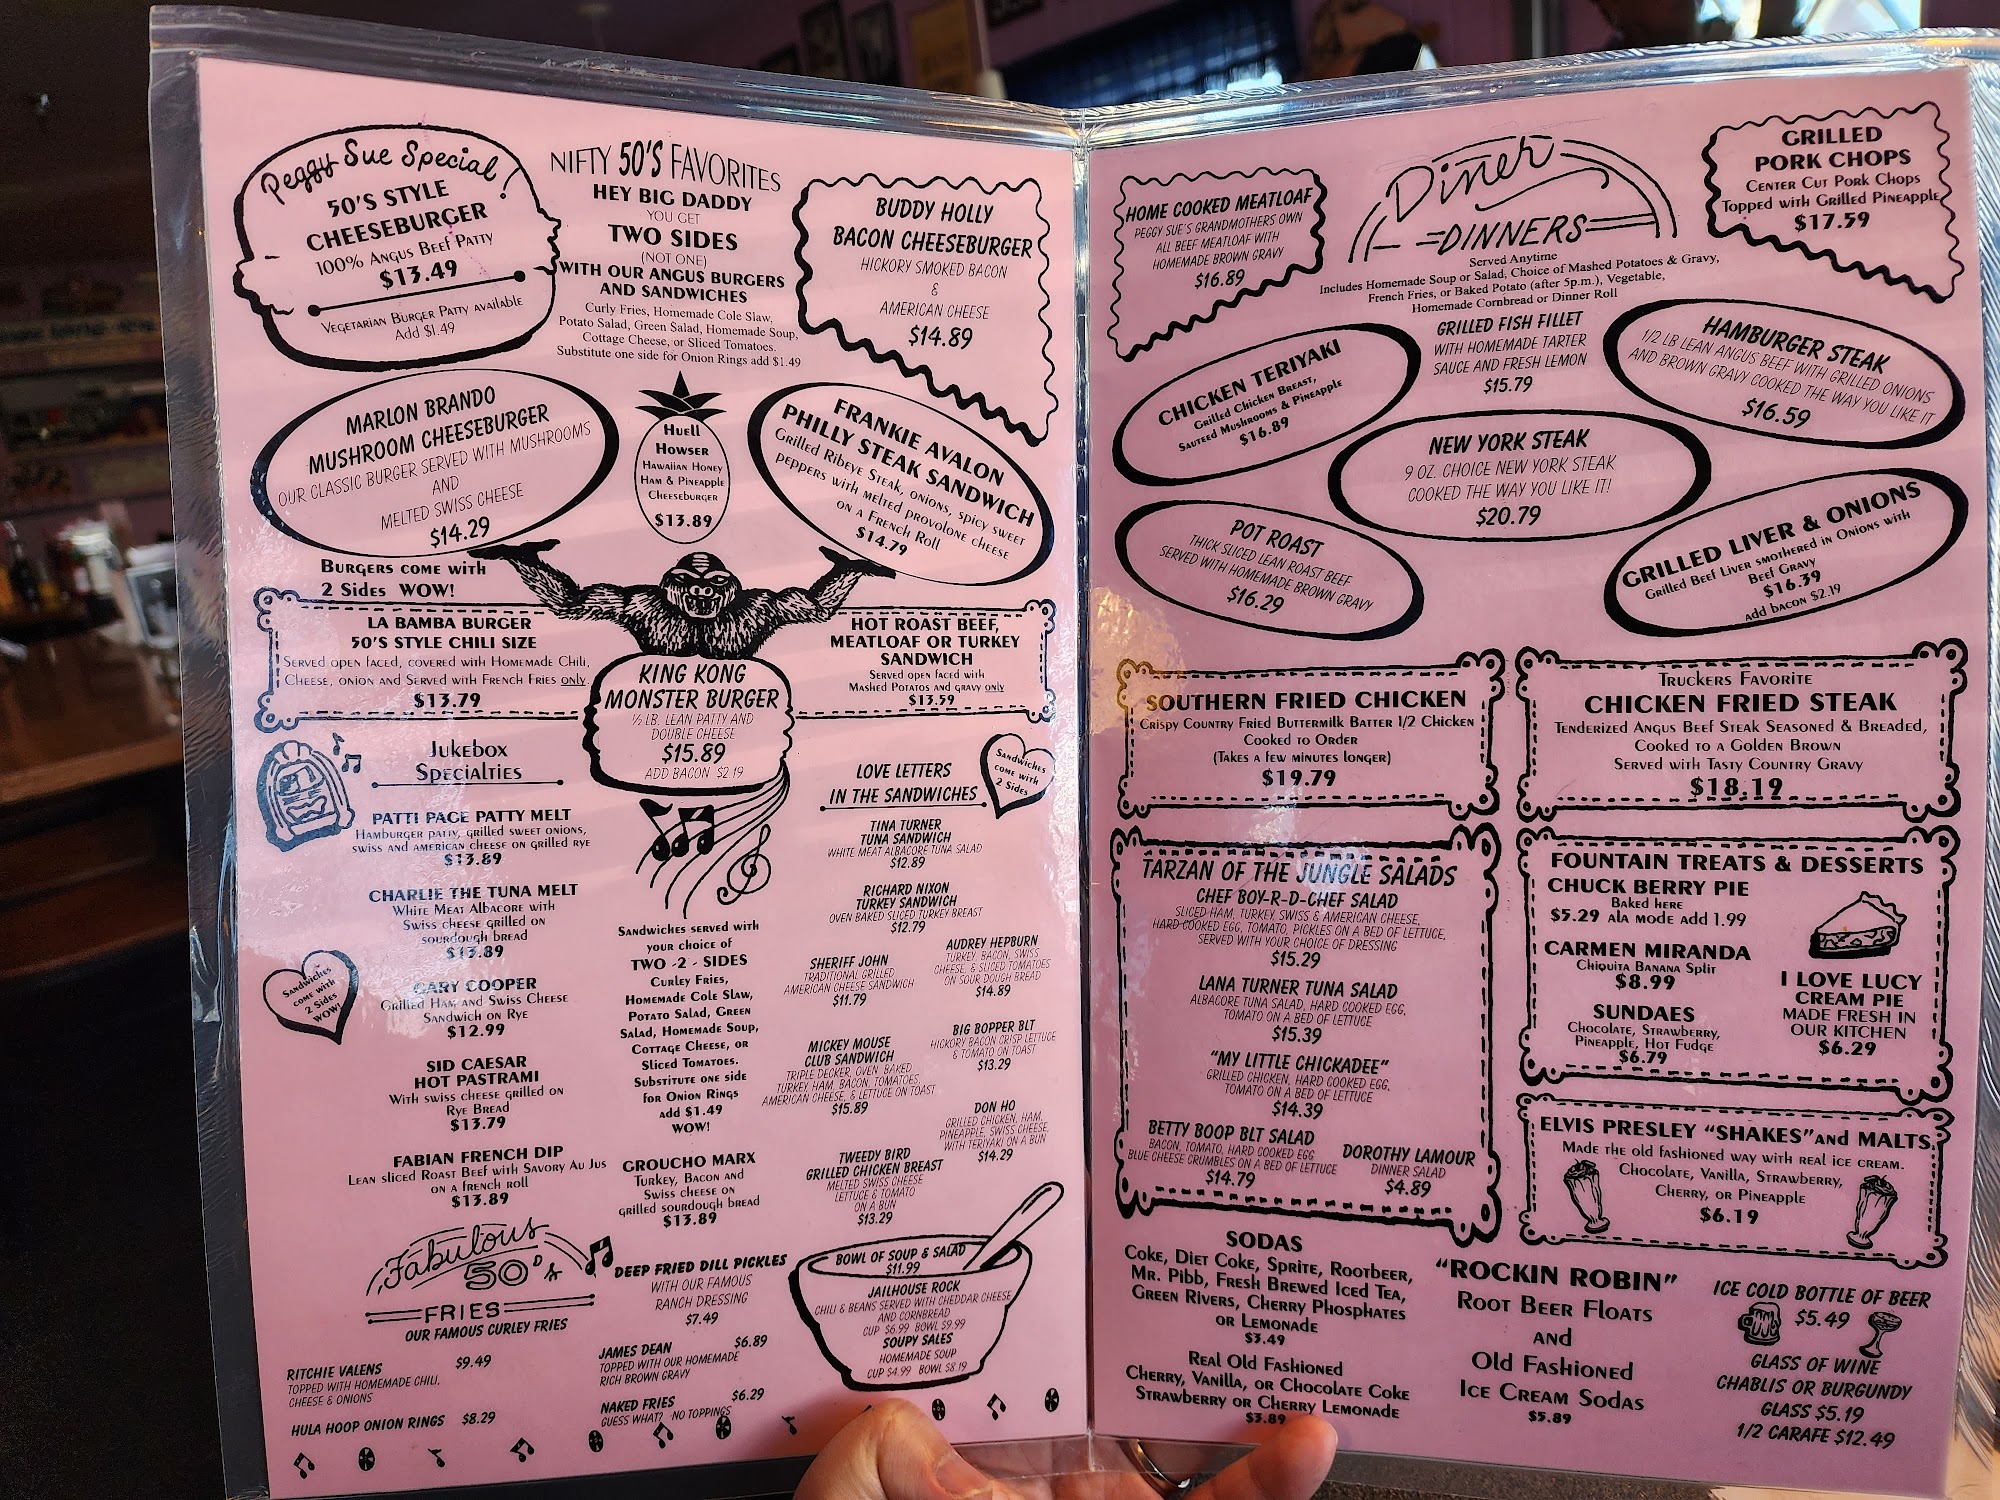 Peggy Sue Special!
50'S STYLE
CHEESEBURGER
100% Angus Beef Patty
$13.49
Vegetarian Burger Patty available
Add $1.49
NIFTY 50'S FAVORITES
HEY BIG DADDY
YOU GET
TWO SIDES
(NOT ONE)
WITH OUR ANGUS BURGERS
AND SANDWICHES
Curly Fries, Homemade Cole Slaw,
Potato Salad, Green Salad, Homemade Soup,
Cottage Cheese, or Sliced Tomatoes.
Substitute one side for Onion Rings add $1.49
BUDDY HOLLY
BACON CHEESEBURGER
HICKORY SMOKED BACON
&
AMERICAN CHEESE
$14.89
MARLON BRANDO
MUSHROOM CHEESEBURGER
OUR CLASSIC BURGER SERVED WITH MUSHROOMS
AND
MELTED SWISS CHEESE
$14.29
Huell
Howser
Hawaiian Honey
Ham & Pineapple
Cheeseburger
$13.89
FRANKIE AVALON
PHILLY STEAK SANDWICH
Grilled Ribeye Steak, onions, spicy sweet
peppers with melted provolone cheese
on a French Roll
$14.79
Burgers come with
2 Sides WOW!
LA BAMBA BURGER
50'S STYLE CHILI SIZE
Served open faced, covered with Homemade Chili,
Cheese, onion and Served with French Fries only
$13.79
KING KONG
MONSTER BURGER
½ LB. LEAN PATTY AND
DOUBLE CHEESE
$15.89
ADD BACON $2.19
HOT ROAST BEEF,
MEATLOAF OR TURKEY
SANDWICH
Served open faced with
Mashed Potatos and gravy only
$13.59
Jukebox
Specialties
PATTI PAGE PATTY MELT
Hamburger patty, grilled sweet onions,
swiss and american cheese on grilled rye
$13.89
CHARLIE THE TUNA MELT
White Meat Albacore with
Swiss cheese grilled on
sourdough bread
$13.89
Sandwiches
come with
2 Sides
WOW!
GARY COOPER
Grilled Ham and Swiss Cheese
Sandwich on Rye
$12.99
SID CAESAR
HOT PASTRAMI
With swiss cheese grilled on
Rye Bread
$13.79
FABIAN FRENCH DIP
Lean sliced Roast Beef with Savory Au Jus
on a french roll
$13.89
Sandwiches served with
your choice of
TWO -2 - SIDES
Curley Fries,
Homemade Cole Slaw,
Potato Salad, Green
Salad, Homemade Soup,
Cottage Cheese, or
Sliced Tomatoes.
Substitute one side
for Onion Rings
add $1.49
WOW!
GROUCHO MARX
Turkey, Bacon and
Swiss cheese on
grilled sourdough bread
$13.89
LOVE LETTERS
IN THE SANDWICHES
Sandwiches
come with
2 Sides
TINA TURNER
TUNA SANDWICH
WHITE MEAT ALBACORE TUNA SALAD
$12.89
RICHARD NIXON
TURKEY SANDWICH
OVEN BAKED SLICED TURKEY BREAST
$12.79
SHERIFF JOHN
TRADITIONAL GRILLED
AMERICAN CHEESE SANDWICH
$11.79
AUDREY HEPBURN
TURKEY, BACON, SWISS
CHEESE, & SLICED TOMATOES
ON SOUR DOUGH BREAD
$14.89
MICKEY MOUSE
CLUB SANDWICH
TRIPLE DECKER, OVEN BAKED
TURKEY, HAM, BACON, TOMATOES,
AMERICAN CHEESE, & LETTUCE ON TOAST
$15.89
BIG BOPPER BLT
HICKORY BACON CRISP LETTUCE
& TOMATO ON TOAST
$13.29
DON HO
GRILLED CHICKEN, HAM,
PINEAPPLE, SWISS CHEESE,
WITH TERIYAKI ON A BUN
$14.29
TWEEDY BIRD
GRILLED CHICKEN BREAST
MELTED SWISS CHEESE
LETTUCE & TOMATO
ON A BUN
$13.29
Fabulous
50's
FRIES
OUR FAMOUS CURLEY FRIES
RITCHIE VALENS $9.49
TOPPED WITH HOMEMADE CHILI,
CHEESE & ONIONS
HULA HOOP ONION RINGS $8.29
DEEP FRIED DILL PICKLES
WITH OUR FAMOUS
RANCH DRESSING
$7.49
JAMES DEAN $6.89
TOPPED WITH OUR HOMEMADE
RICH BROWN GRAVY
NAKED FRIES $6.29
GUESS WHAT? NO TOPPINGS
BOWL OF SOUP & SALAD
$11.99
JAILHOUSE ROCK
CHILI & BEANS SERVED WITH CHEDDAR CHEESE
AND CORNBREAD
CUP $6.99 BOWL $9.99
SOUPY SALES
HOMEMADE SOUP
CUP $4.99 BOWL $8.19
HOME COOKED MEATLOAF
PEGGY SUE'S GRANDMOTHERS OWN
ALL BEEF MEATLOAF WITH
HOMEMADE BROWN GRAVY
$16.89
Diner
DINNERS
Served Anytime
Includes Homemade Soup or Salad, Choice of Mashed Potatoes & Gravy,
French Fries, or Baked Potato (after 5p.m.), Vegetable,
Homemade Cornbread or Dinner Roll
GRILLED
PORK CHOPS
Center Cut Pork Chops
Topped with Grilled Pineapple
$17.59
CHICKEN TERIYAKI
Grilled Chicken Breast,
Sauteed Mushrooms & Pineapple
$16.89
GRILLED FISH FILLET
WITH HOMEMADE TARTER
SAUCE AND FRESH LEMON
$15.79
HAMBURGER STEAK
1/2 LB LEAN ANGUS BEEF WITH GRILLED ONIONS
AND BROWN GRAVY COOKED THE WAY YOU LIKE IT
$16.59
NEW YORK STEAK
9 OZ. CHOICE NEW YORK STEAK
COOKED THE WAY YOU LIKE IT!
$20.79
POT ROAST
THICK SLICED LEAN ROAST BEEF
SERVED WITH HOMEMADE BROWN GRAVY
$16.29
GRILLED LIVER & ONIONS
Grilled Beef Liver smothered in Onions with
Beef Gravy
$16.39
add bacon $2.19
SOUTHERN FRIED CHICKEN
Crispy Country Fried Buttermilk Batter 1/2 Chicken
Cooked to Order
(Takes a few minutes longer)
$19.79
Truckers Favorite
CHICKEN FRIED STEAK
Tenderized Angus Beef Steak Seasoned & Breaded,
Cooked to a Golden Brown
Served with Tasty Country Gravy
$18.19
TARZAN OF THE JUNGLE SALADS
CHEF BOY-R-D-CHEF SALAD
SLICED HAM, TURKEY, SWISS & AMERICAN CHEESE,
HARD-COOKED EGG, TOMATO, PICKLES ON A BED OF LETTUCE,
SERVED WITH YOUR CHOICE OF DRESSING
$15.29
LANA TURNER TUNA SALAD
ALBACORE TUNA SALAD, HARD COOKED EGG,
TOMATO ON A BED OF LETTUCE
$15.39
"MY LITTLE CHICKADEE"
GRILLED CHICKEN, HARD COOKED EGG,
TOMATO ON A BED OF LETTUCE
$14.39
BETTY BOOP BLT SALAD
BACON, TOMATO, HARD COOKED EGG
BLUE CHEESE CRUMBLES ON A BED OF LETTUCE
$14.79
DOROTHY LAMOUR
DINNER SALAD
$4.89
FOUNTAIN TREATS & DESSERTS
CHUCK BERRY PIE
Baked here
$5.29 ala mode add 1.99
CARMEN MIRANDA
Chiquita Banana Split
$8.99
SUNDAES
Chocolate, Strawberry,
Pineapple, Hot Fudge
$6.79
I LOVE LUCY
CREAM PIE
MADE FRESH IN
OUR KITCHEN
$6.29
ELVIS PRESLEY "SHAKES" and MALTS,
Made the old fashioned way with real ice cream.
Chocolate, Vanilla, Strawberry,
Cherry, or Pineapple
$6.19
SODAS
Coke, Diet Coke, Sprite, Rootbeer,
Mr. Pibb, Fresh Brewed Iced Tea,
Green Rivers, Cherry Phosphates
or Lemonade
$3.49
Real Old Fashioned
Cherry, Vanilla, or Chocolate Coke
Strawberry or Cherry Lemonade
$3.89
"ROCKIN ROBIN"
Root Beer Floats
and
Old Fashioned
Ice Cream Sodas
$5.89
ICE COLD BOTTLE OF BEER
$5.49
GLASS OF WINE
CHABLIS OR BURGUNDY
GLASS $5.19
1/2 CARAFE $12.49